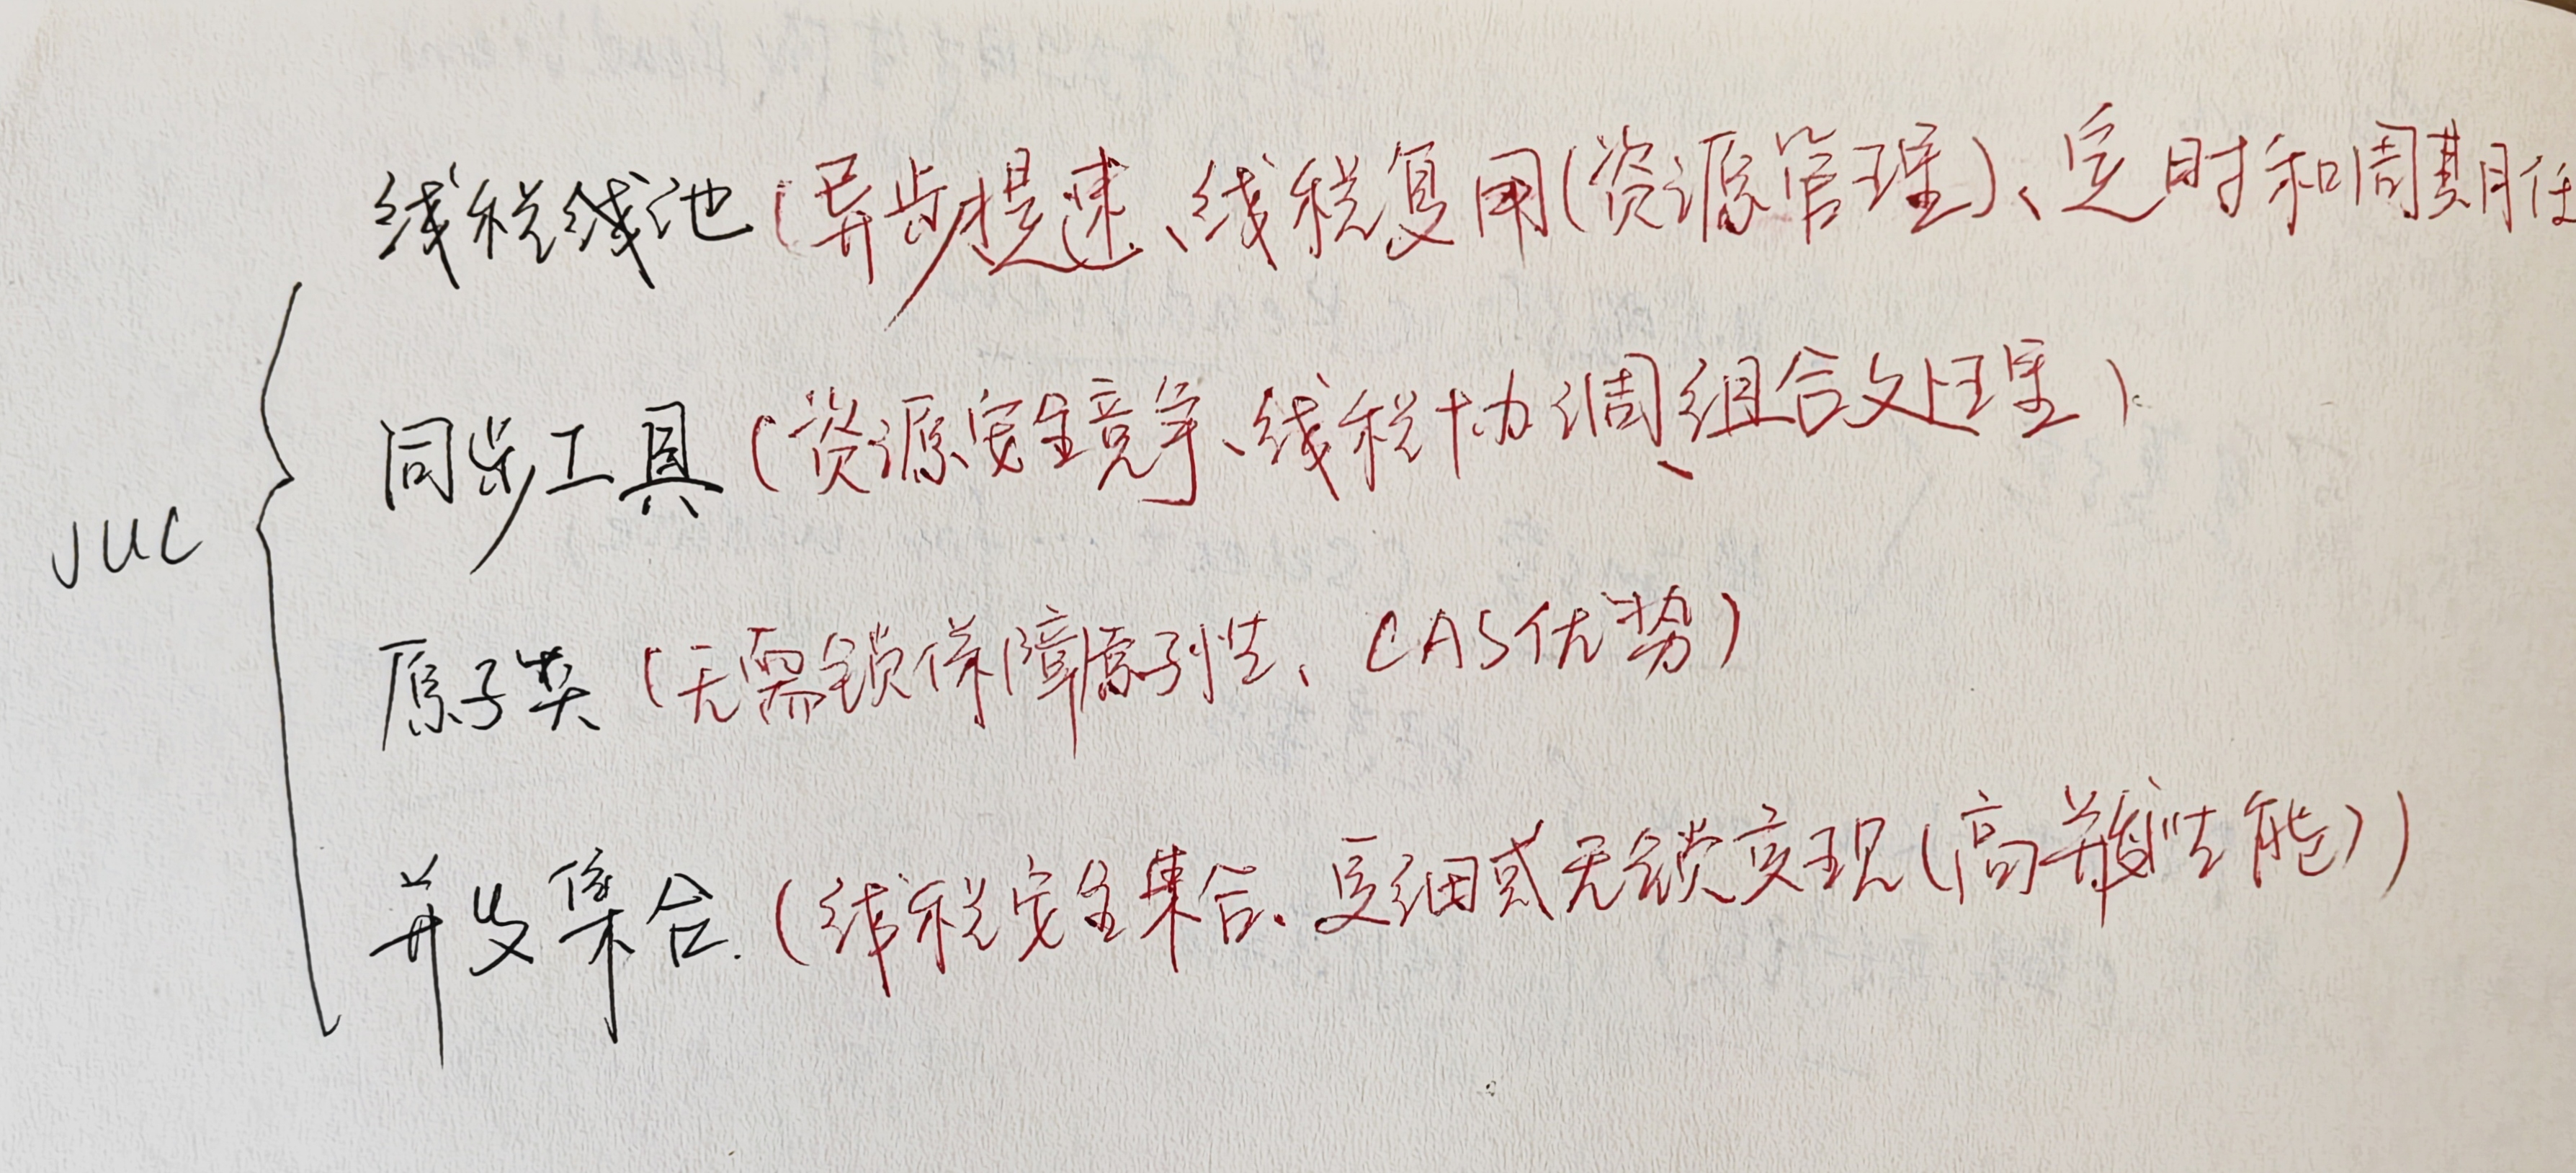 线程线池(异步提速、线程复用(资源管理)、定时和周期任
同步工具(资源安全竞争、线程协调、组合处理)
JUC
原子类(无需锁保障原子性、CAS优势)
并发集合.(线程安全集合、更细或无锁实现(高并发性能))